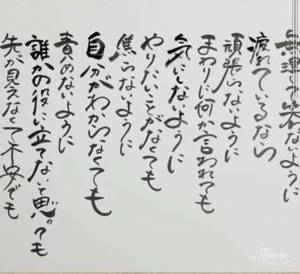 無理して笑わないように
疲れているなら
頑張らないように
まわりに何か言われても
気にしないように
やりたいことがなくても
焦らないように
自分がわからなくても
責めないように
誰かの役に立てないと思っても
先が見えなくて不安でも